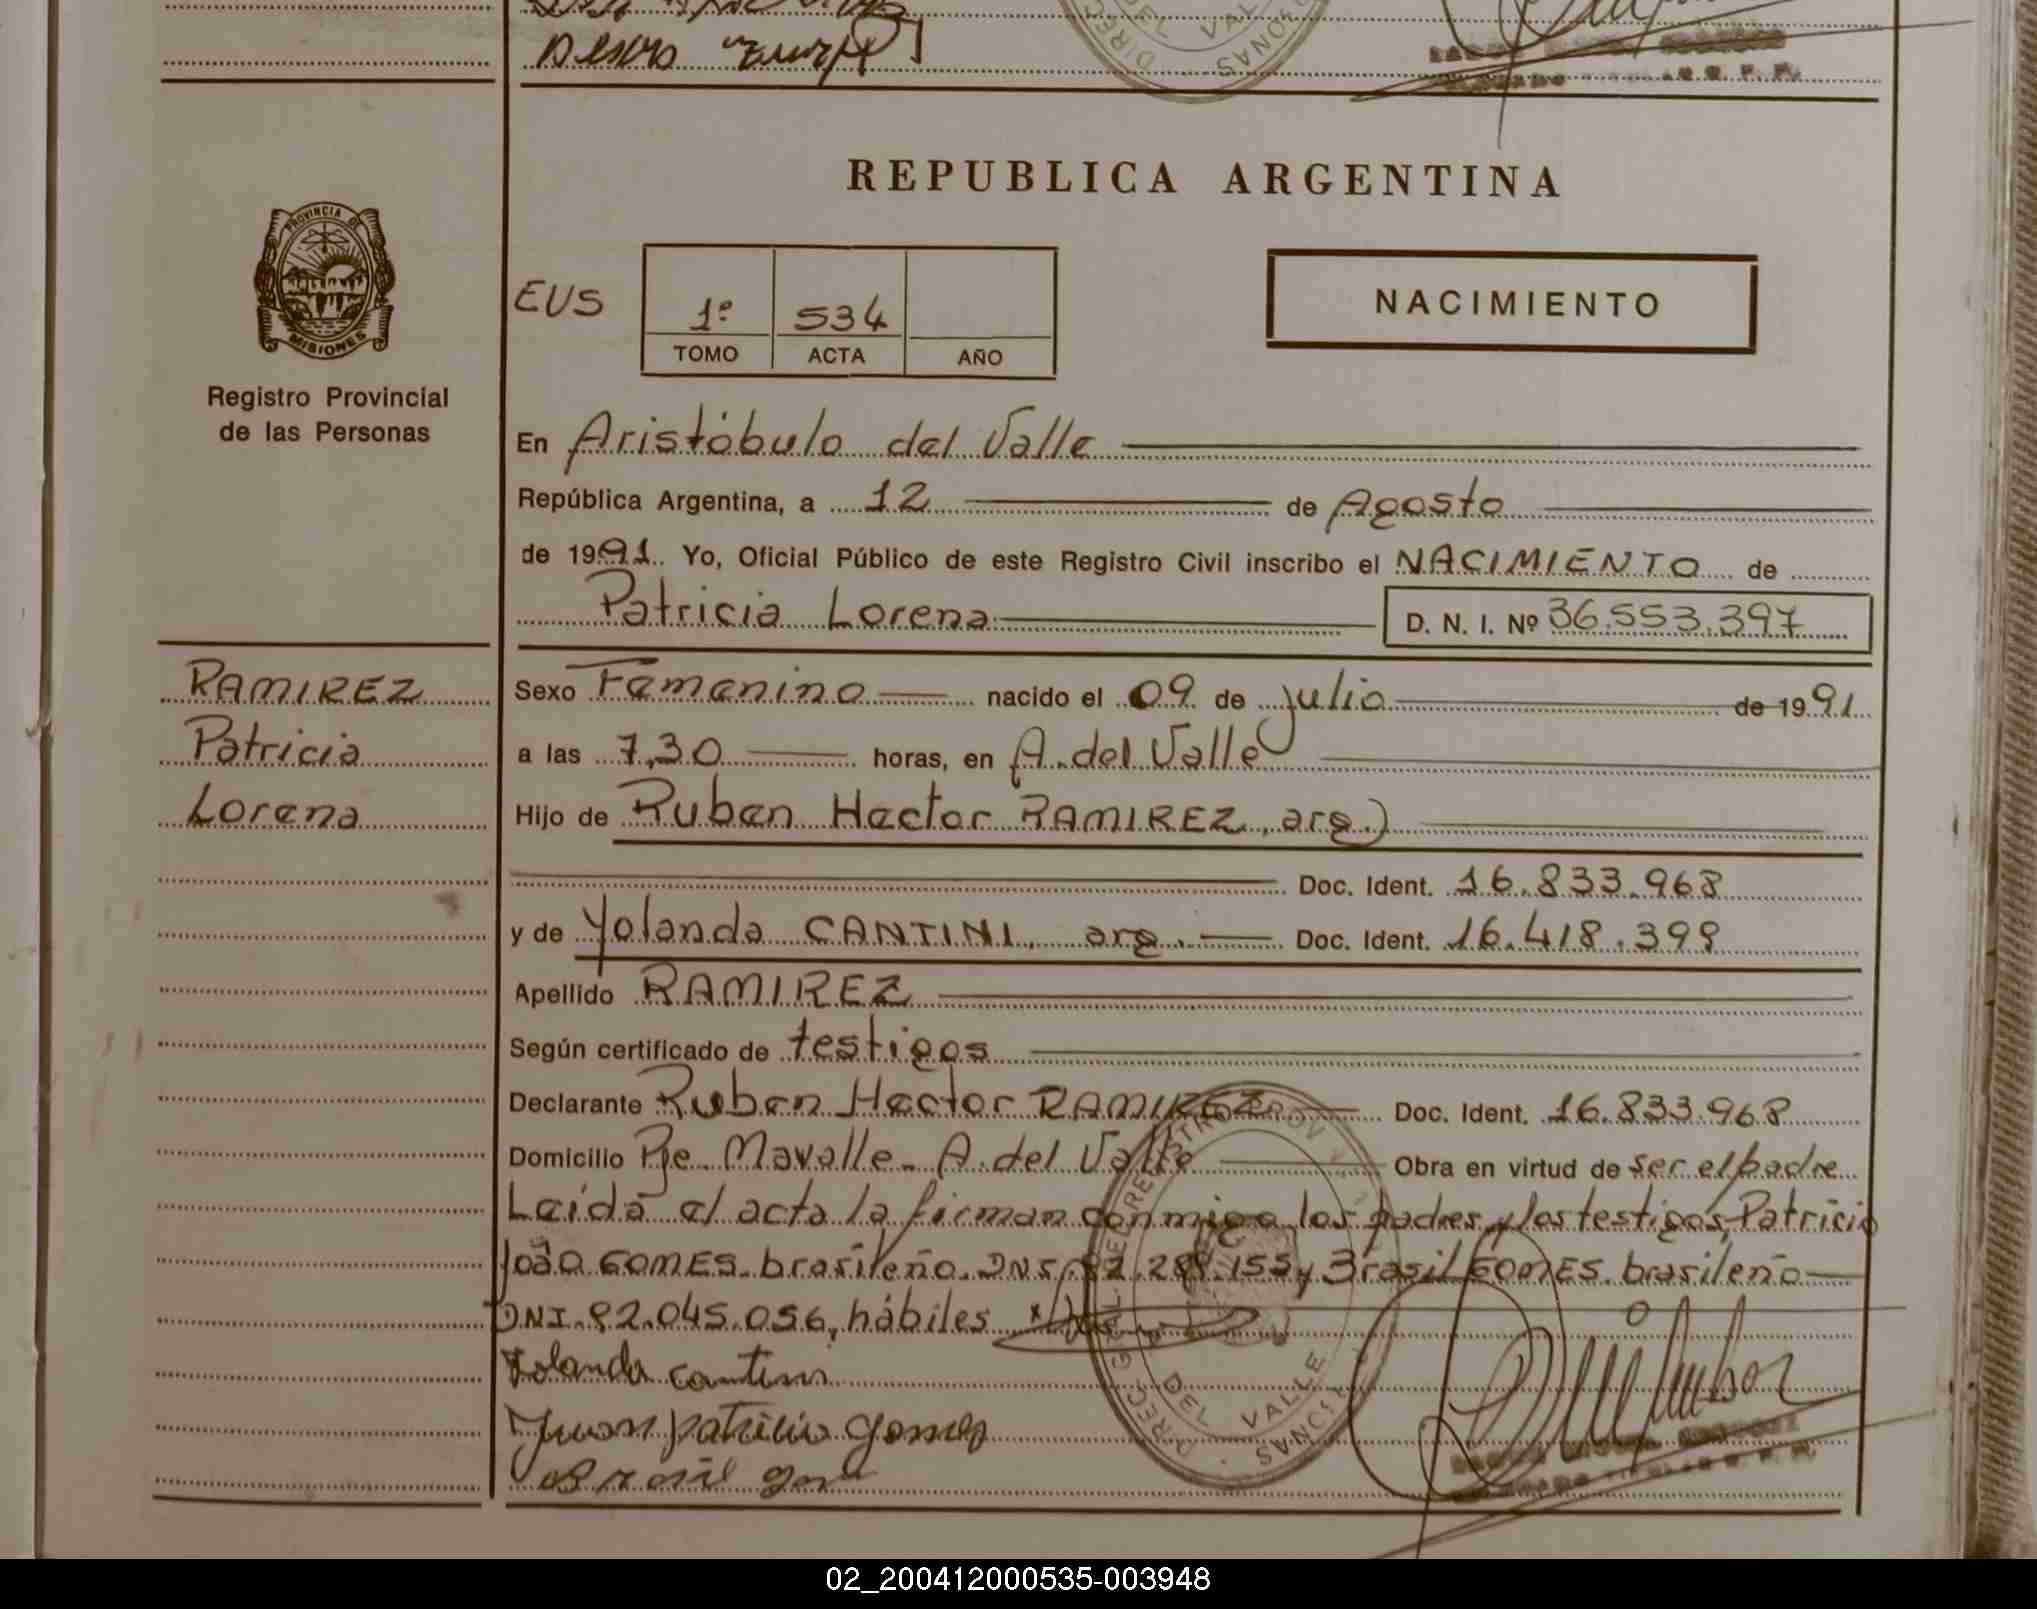 REPUBLICA ARGENTINA
PROVINCIA DE
MISIONES
Registro Provincial
de las Personas
EUS
1º 534
TOMO ACTA AÑO
NACIMIENTO
En Aristóbulo del Valle
República Argentina, a 12 de Agosto
de 1991. Yo, Oficial Público de este Registro Civil inscribo el NACIMIENTO de
Patricia Lorena D. N. I. Nº 36.553.397
RAMIREZ
Patricia
Lorena
Sexo Femenino nacido el 09 de julio de 1991
a las 7,30 horas, en A. del Valle
Hijo de Ruben Hector RAMIREZ, arg.)
Doc. Ident. 16.833.968
y de Yolanda CANTINI, arg. Doc. Ident. 16.418.399
Apellido RAMIREZ
Según certificado de testigos
Declarante Ruben Hector RAMIREZ Doc. Ident. 16.833.968
Domicilio Pje. Mavalle - A. del Valle Obra en virtud de ser el padre
Leída el acta la firman conmigo los padres y los testigos, Patricio
João GOMES. brasileño. DNI. 92.289.155 y Brasil GOMES. brasileño
DNI. 92.045.056, hábiles
Yolanda Cantini
Juan Patricio Gomes
Brasil
DEL VALLE
02_200412000535-003948